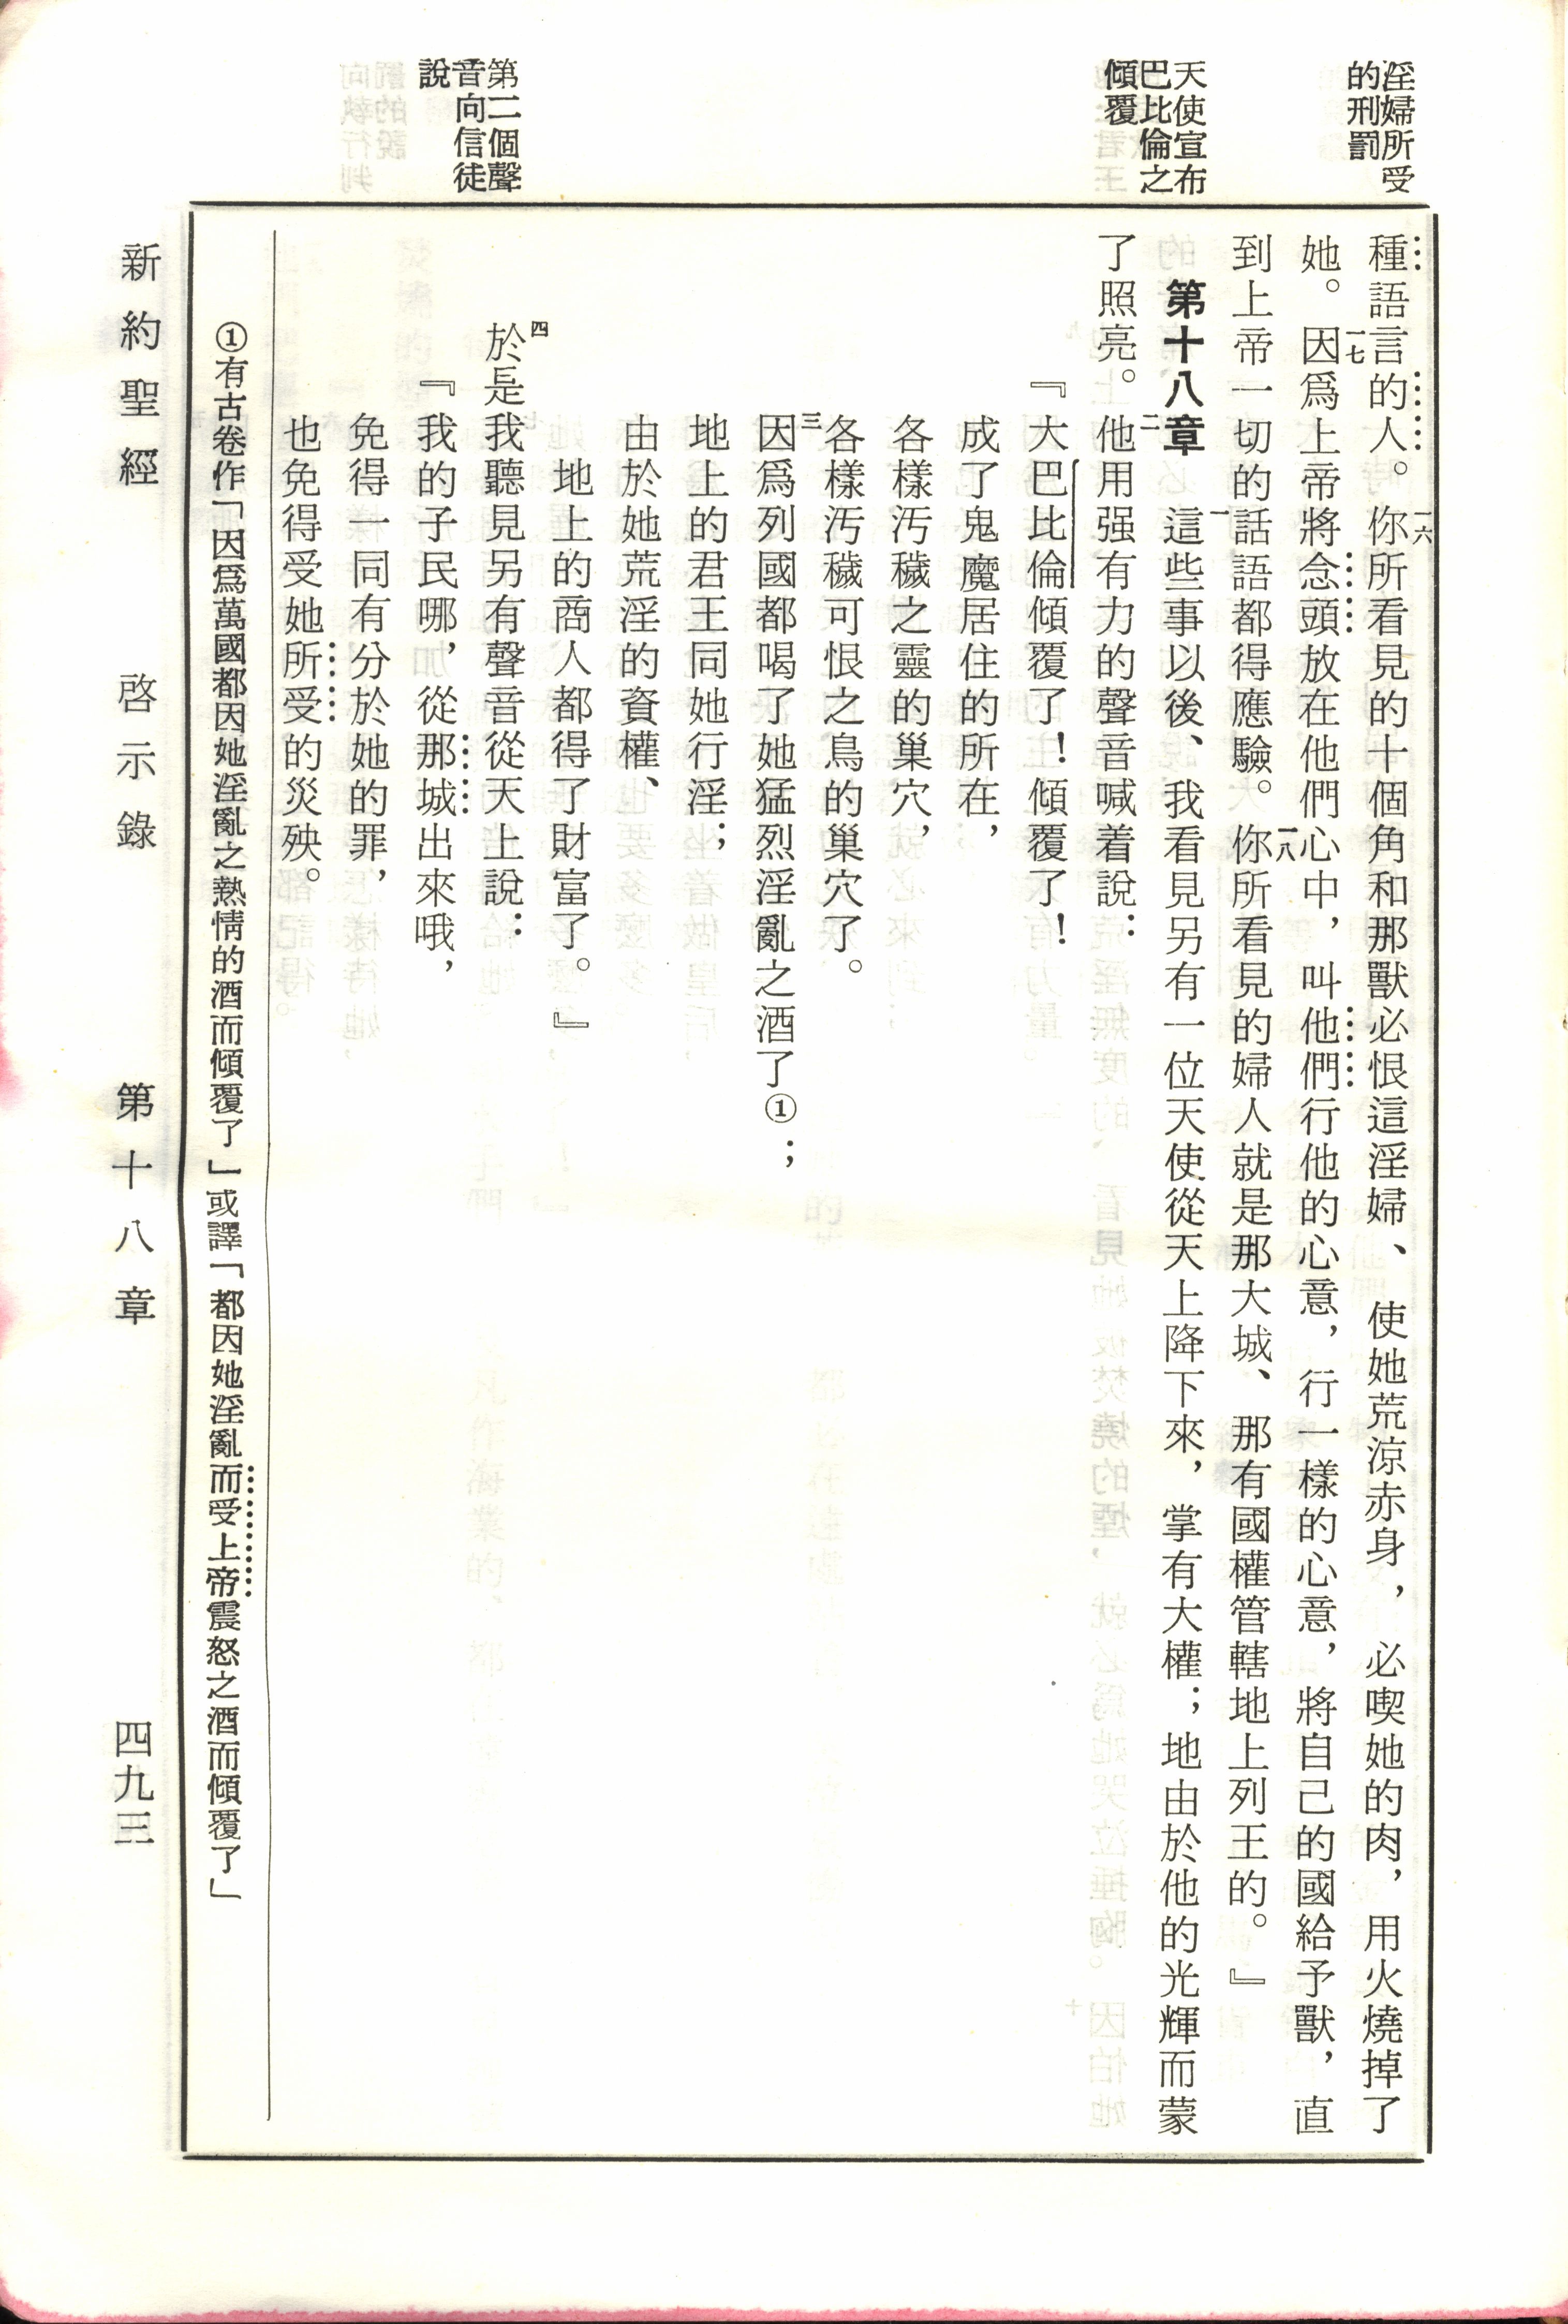 淫婦所受
的刑罰
天使宣布
巴比倫之
傾覆
第二個聲
音向信徒
說
種語言的人。一六你所看見的十個角和那獸必恨這淫婦、使她荒涼赤身，必喫她的肉，用火燒掉了
她。一七因爲上帝將念頭放在他們心中，叫他們行他的心意，行一樣的心意，將自己的國給予獸，直
到上帝一切的話語都得應驗。一八你所看見的婦人就是那大城、那有國權管轄地上列王的。』
第十八章 一這些事以後、我看見另有一位天使從天上降下來，掌有大權；地由於他的光輝而蒙
了照亮。二他用强有力的聲音喊着說：
『大巴比倫傾覆了！傾覆了！
成了鬼魔居住的所在，
各樣汚穢之靈的巢穴，
各樣汚穢可恨之鳥的巢穴了。
三因爲列國都喝了她猛烈淫亂之酒了①；
地上的君王同她行淫；
由於她荒淫的資權、
地上的商人都得了財富了。』
四於是我聽見另有聲音從天上說：
『我的子民哪，從那城出來哦，
免得一同有分於她的罪，
也免得受她所受的災殃。
①有古卷作「因爲萬國都因她淫亂之熱情的酒而傾覆了」或譯「都因她淫亂而受上帝震怒之酒而傾覆了」
新約聖經 啓示錄 第十八章 四九三